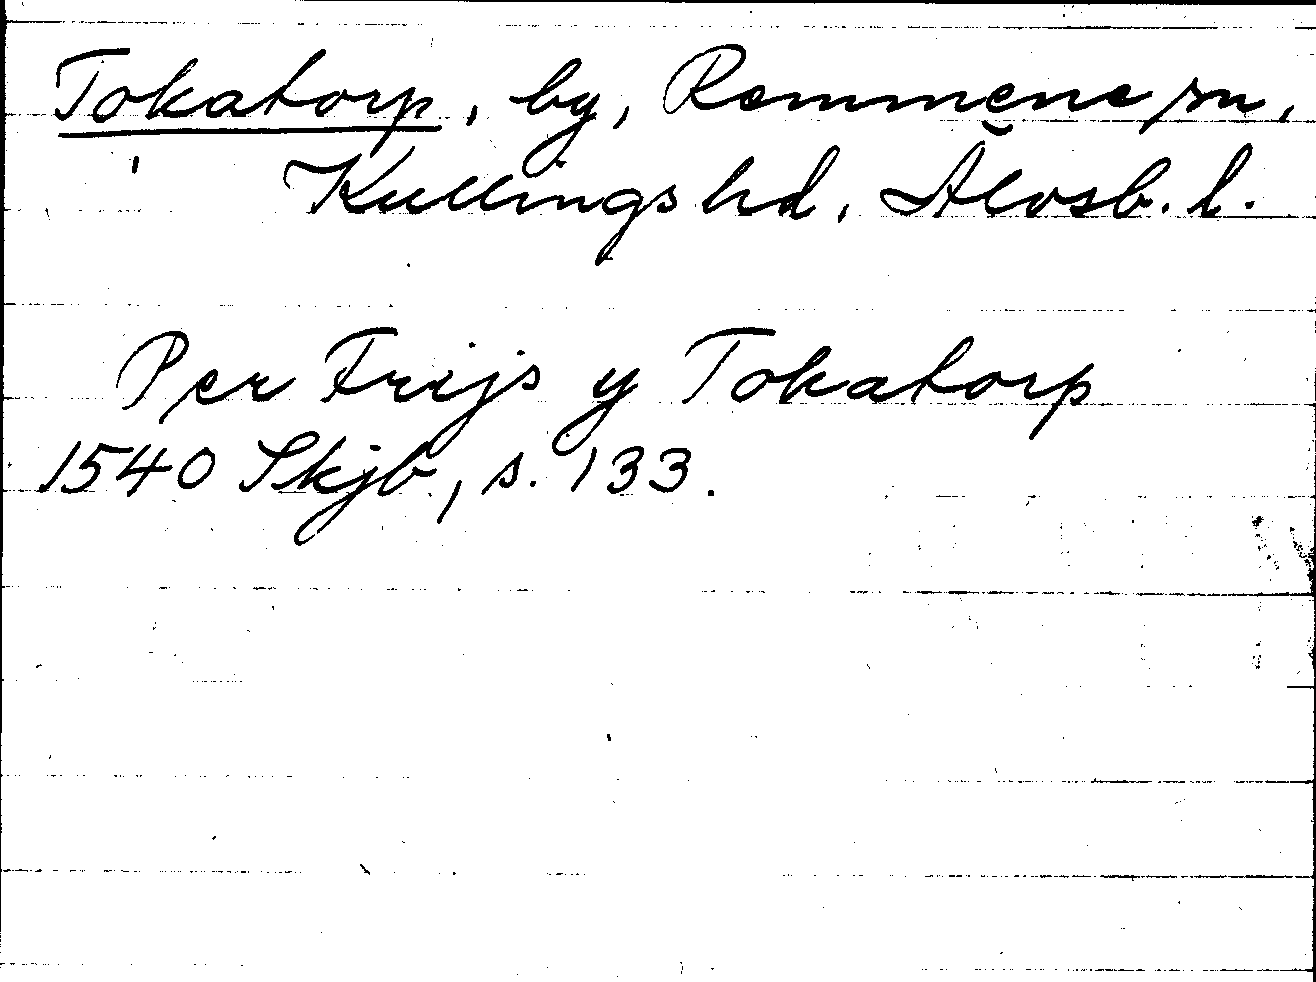 Tokatorp, by, Remmene sn,
Kullings hd, Älvsb. l.
Per Frijs y Tokatorp
1540 Skjb, s. 133.